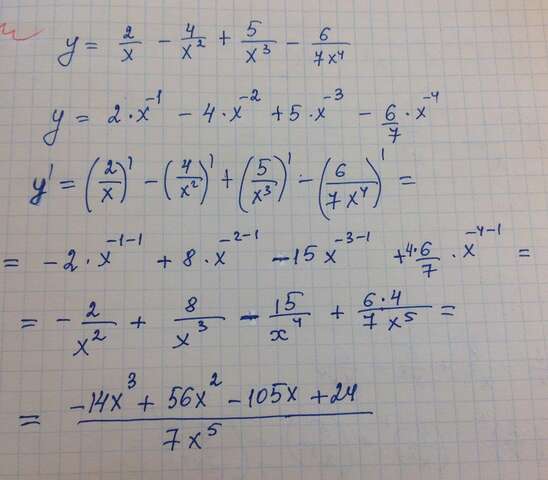 y = 2/x - 4/x² + 5/x³ - 6/7x⁴
y = 2·x⁻¹ - 4·x⁻² + 5·x⁻³ - 6/7·x⁻⁴
y' = (2/x)' - (4/x²)' + (5/x³)' - (6/7x⁴)' =
= -2·x⁻¹⁻¹ + 8·x⁻²⁻¹ - 15x⁻³⁻¹ + 4·6/7·x⁻⁴⁻¹ =
= - 2/x² + 8/x³ - 15/x⁴ + 6·4/7x⁵ =
= (-14x³ + 56x² - 105x + 24)/7x⁵